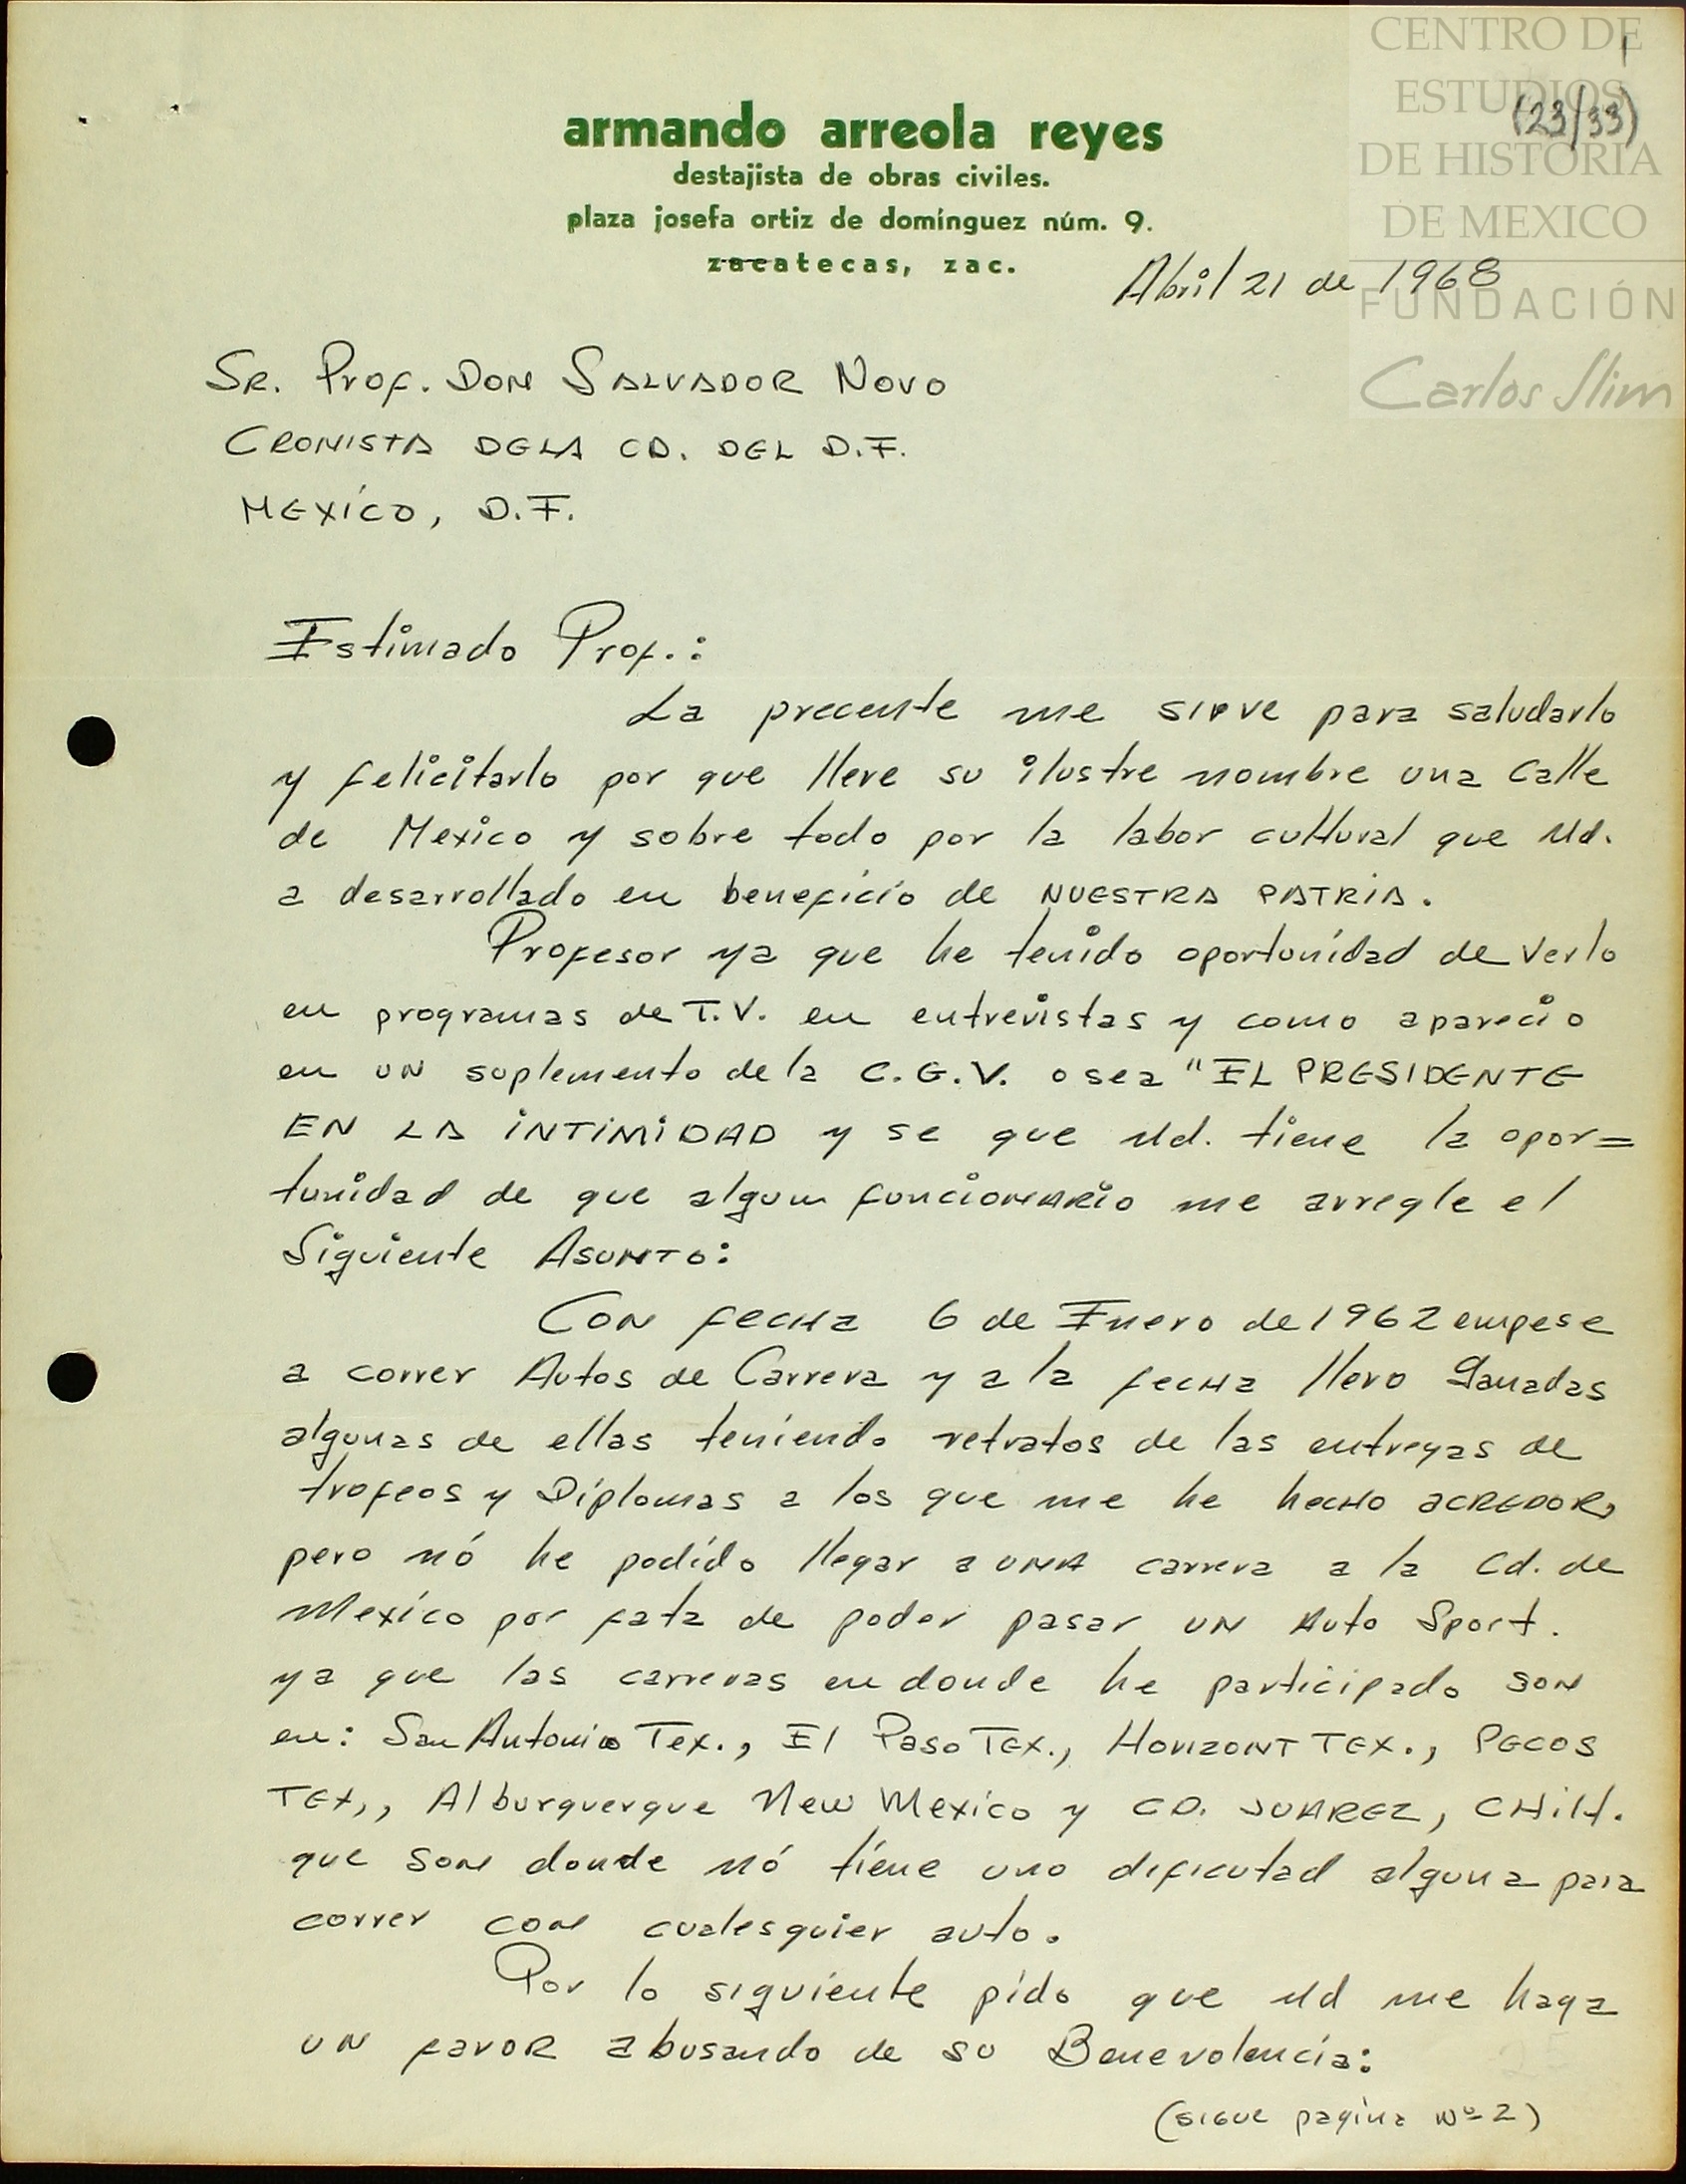 CENTRO DE
ESTUDIOS
DE HISTORIA
DE MEXICO
FUNDACIÓN
Carlos Slim
1
(23/33)
armando arreola reyes
destajista de obras civiles.
plaza josefa ortiz de domínguez núm. 9.
zacatecas, zac.
Abril 21 de 1968
SR. Prof. DON SALVADOR NOVO
CRONISTA DE LA CD. DEL D.F.
MEXÍCO, D.F.
Estimado Prof.:
La precente me sirve para saludarlo
y felicitarlo por que lleve su ilustre nombre una calle
de Mexico y sobre todo por la labor cultural que Ud.
a desarrollado en beneficio de NUESTRA PATRIA.
Profesor ya que he tenido oportunidad de verlo
en programas de T.V. en entrevistas y como aparecio
en UN suplemento de la C.G.V. o sea "EL PRESIDENTE
EN LA INTIMIDAD y se que Ud. tiene la opor=
tunidad de que algun funcionario me arregle el
Siguiente Asunto:
CON fecha 6 de Enero de 1962 empese
a correr Autos de Carrera y a la fecha llevo Ganadas
algunas de ellas teniendo retratos de las entregas de
trofeos y Diplomas a los que me he hecho ACREDOR,
pero nó he podído llegar a UNA carrera a la Cd. de
Mexíco por fata de poder pasar UN Auto Sport.
ya que las carreras en donde he participado SON
en: San Antonio Tex., El Paso TEX., HORIZONT TEX., PECOS
TEX,, Alburquerque New Mexico y CD. JUAREZ, CHIH.
que son donde nó tíene uno dificutad alguna para
correr con cualesquier auto.
Por lo siguiente pido que Ud me haga
UN favor abusando de su Benevolencia:
(sigue pagina Nº 2)